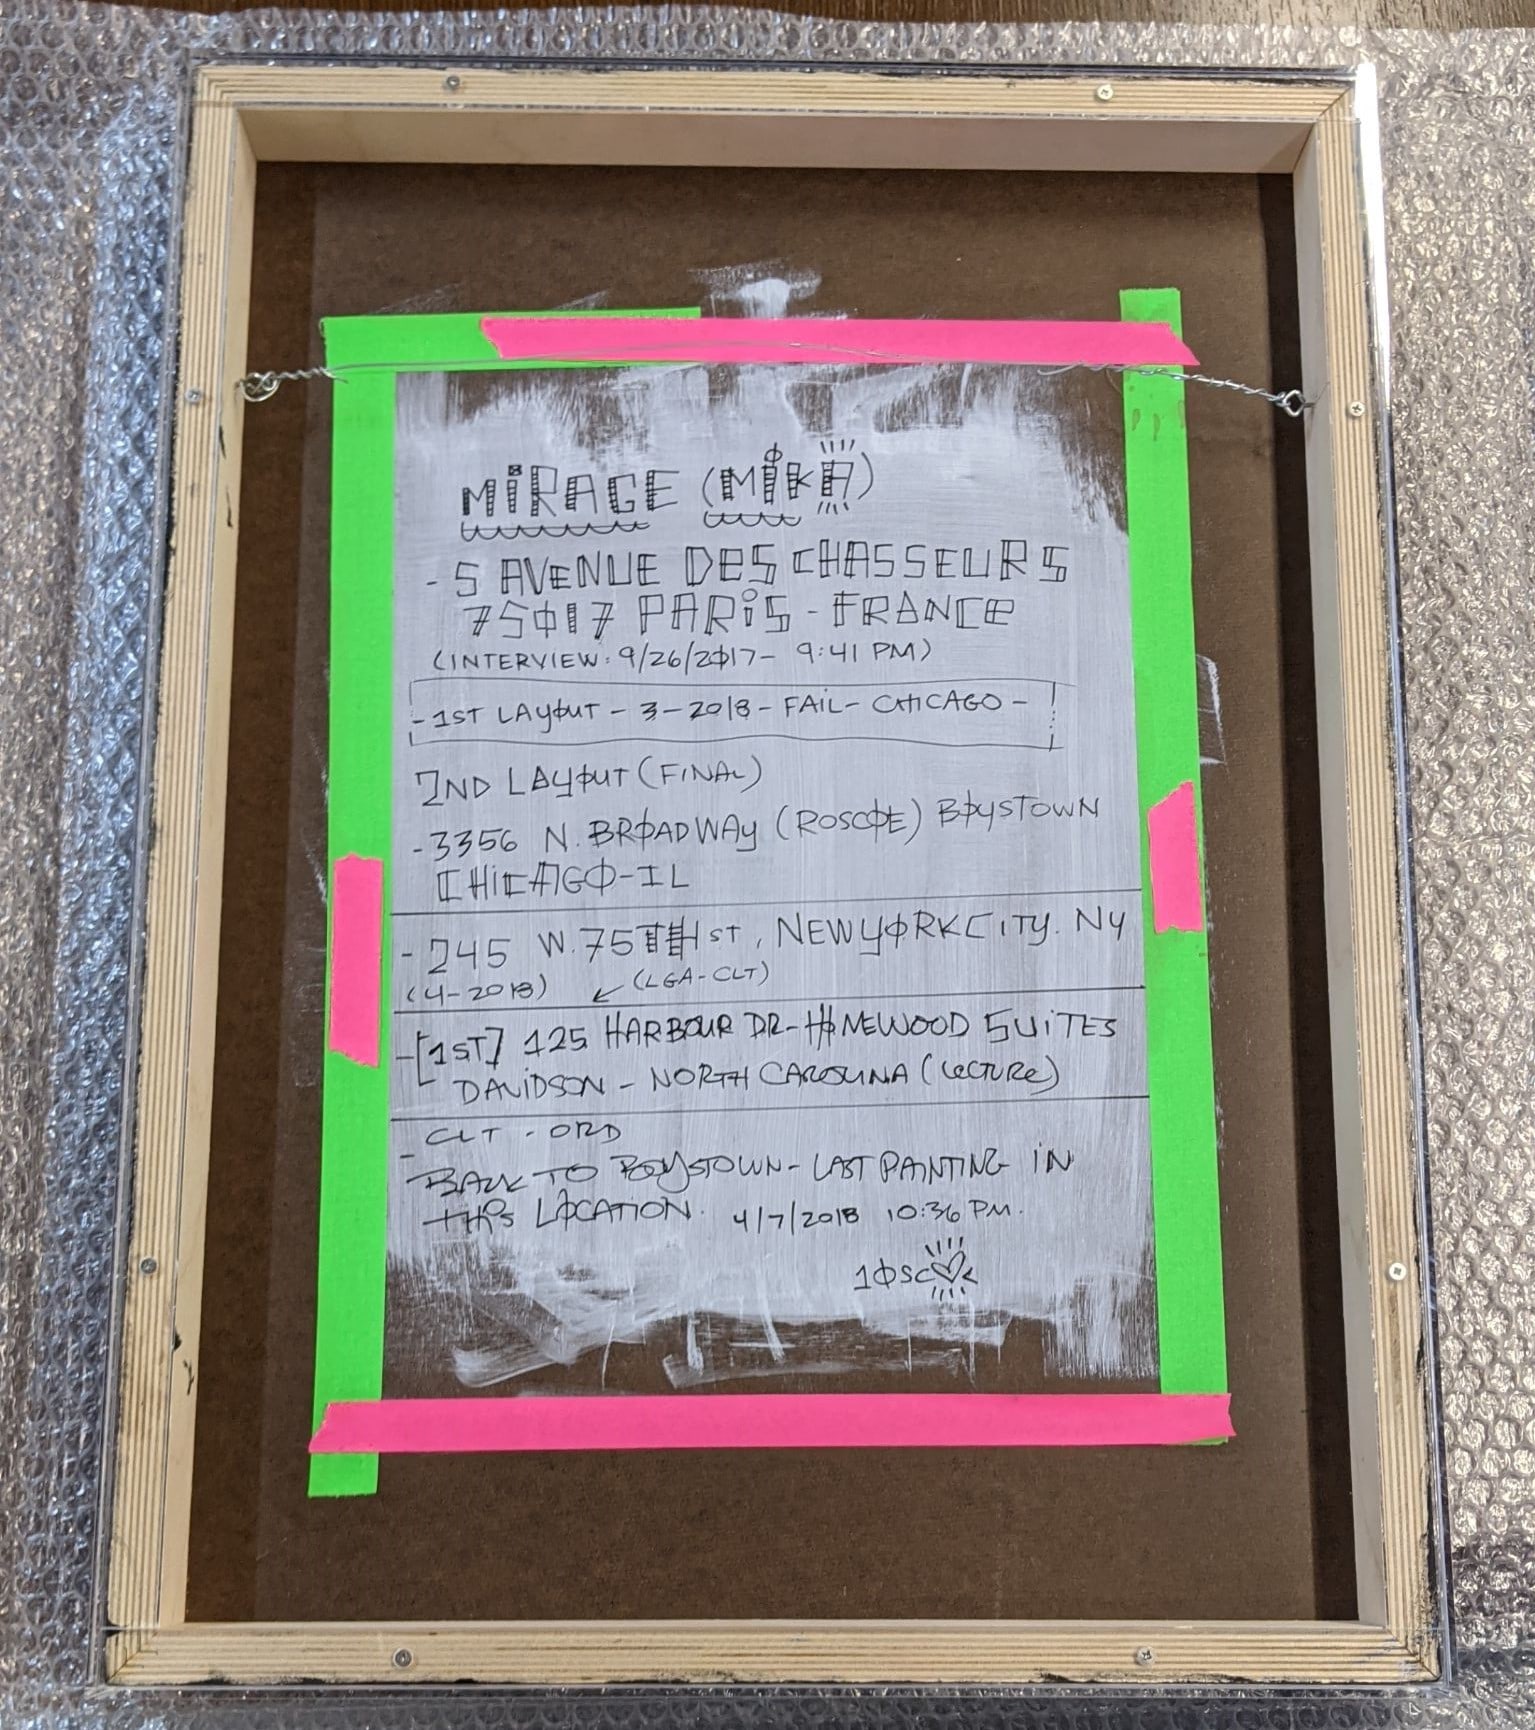 MiRAGE (MiKA)
- 5 AVENUE DES CHASSEURS
75017 PARiS - FRANCE
(INTERVIEW: 9/26/2017 - 9:41 PM)
- 1ST LAYOUT - 3-2018 - FAIL - CHICAGO -
2ND LAYOUT (FINAL)
- 3356 N. BROADWAY (ROSCOE) BOYSTOWN
CHiCAGO-IL
- 245 W. 75TH ST, NEW YORK CITY. NY
(4-2018) ↙ (LGA-CLT)
- [1ST] 125 HARBOUR DR - HOMEWOOD SUiTES
DAViDSON - NORTH CAROLINA (LECTURE)
- CLT - ORD
BACK TO BOYSTOWN - LAST PAINTING iN
THiS LOCATION. 4/7/2018 10:36 PM.